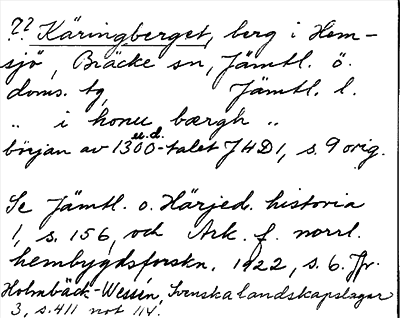 ?? Käringberget, berg i Hem-
sjö, Bräcke sn, Jämtl. ö.
doms. tg, Jämtl. l.
„ i konu bærgh „
u.d.
början av 1300-talet J4D1, s. 9 orig.
Se Jämtl. o. Härjed. historia
1, s. 156, och Ark. f. norrl.
hembygdsforskn. 1922, s. 6. Jfr.
Holmbäck-Wessén, Svenska landskapslagar
3, s. 411 not 114.